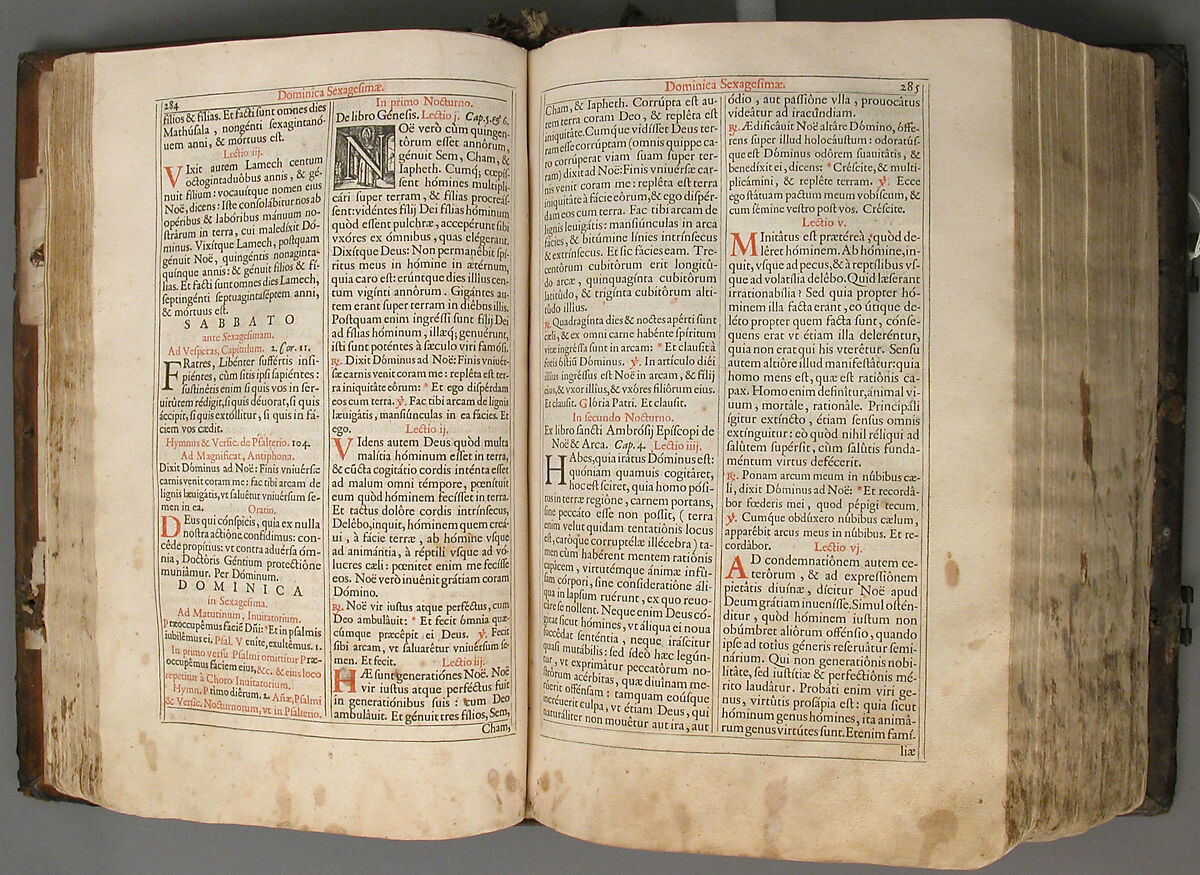 284
Dominica Sexagesimæ.
filios & filias. Et facti sunt omnes dies
Mathúsala, nongénti sexagintanó-
uem anni, & mórtuus est.
Lectio iij.
VIxit autem Lamech centum
octogintaduóbus annis, & gé-
nuit filium: vocauítque nomen eius
Noë, dicens: Iste consolábitur nos ab
opéribus & labóribus mánuum no-
strárum in terra, cui maledíxit Dó-
minus. Vixítque Lamech, postquam
génuit Noë, quingéntis nonaginta-
quínque annis: & génuit filios & fí-
lias. Et facti sunt omnes dies Lamech,
septingénti septuagintaséptem anni,
& mórtuus est.
SABBATO
ante Sexagesimam.
Ad Vesperas, Capitulum. 2. Cor. 11.
FRatres, Libénter suffértis insi-
piéntes, cùm sitis ipsi sapiéntes:
sustinétis enim si quis vos in ser-
uitútem rédigit, si quis déuorat, si quis
áccipit, si quis extóllitur, si quis in fá-
ciem vos cædit.
Hymnus & Versic. de Psalterio. 104.
Ad Magnificat, Antiphona.
Dixit Dóminus ad Noë: Finis vniuérsæ
carnis venit coram me: fac tibi arcam de
lignis læuigátis, vt saluétur vniuérsum se-
men in ea. Oratio.
DEus qui cónspicis, quia ex nulla
nostra actióne confídimus: con-
céde propítius: vt contra aduérsa óm-
nia, Doctóris Géntium protectióne
muniámur. Per Dóminum.
DOMINICA
in Sexagesima.
Ad Matutinum, Inuitatorium.
Præoccupémus fáciem Dñi: * Et in psalmis
iubilémus ei, Psal. Venite, exultémus. 1.
In primo versu Psalmi omittitur Præ-
occupémus faciem eius, &c. & eius loco
repetitur à Choro Inuitatorium.
Hymn. Primo diérum. 2. Añæ, Psalmi
& Versic. Nocturnorum, vt in Psalterio.
In primo Nocturno.
De libro Génesis. Lectio j. Cap. 5. & 6.
NOë verò cùm quingen-
tórum esset annórum,
génuit Sem, Cham, &
Iapheth. Cumq́; cœpís-
sent hómines multipli-
cári super terram, & filias procreás-
sent: vidéntes filij Dei filias hóminum
quòd essent pulchræ, accepérunt sibi
vxóres ex ómnibus, quas elégerant.
Dixítque Deus: Non permanébit spí-
ritus meus in hómine in ætérnum,
quia caro est: erúntque dies illíus cen-
tum vigínti annórum. Gigántes au-
tem erant super terram in diébus illis.
Postquam enim ingréssi sunt filij Dei
ad filias hóminum, illæq́; genuérunt,
isti sunt poténtes à sǽculo viri famósi.
℟. Dixit Dóminus ad Noë: Finis vniuér-
sæ carnis venit coram me: repléta est ter-
ra iniquitáte eórum: * Et ego dispérdam
eos cum terra. ℣. Fac tibi arcam de lignis
læuigátis, mansiúnculas in ea fácies. Et
ego. Lectio ij.
VIdens autem Deus quòd multa
malítia hóminum esset in terra,
& cúncta cogitátio cordis inténta esset
ad malum omni témpore, pœnítuit
eum quòd hóminem fecísset in terra.
Et tactus dolóre cordis intrínsecus,
Delébo, inquit, hóminem quem creá-
ui, à fácie terræ, ab hómine vsque
ad animántia, à réptili vsque ad vó-
lucres cæli: pœnitet enim me fecísse
eos. Noë verò inuénit grátiam coram
Dómino.
℟. Noë vir iustus atque perféctus, cum
Deo ambuláuit: * Et fecit ómnia quæ-
cúmque præcépit ei Deus. ℣. Fecit
sibi arcam, vt saluarétur vniuérsum se-
men. Et fecit. Lectio iij.
HÆ sunt generatiónes Noë. Noë
vir iustus atque perféctus fuit
in generatiónibus suis: cum Deo
ambuláuit. Et génuit tres filios, Sem,
Cham,
Dominica Sexagesimæ.
285
Cham, & Iapheth. Corrúpta est au-
tem terra coram Deo, & repléta est
iniquitáte. Cumque vidísset Deus ter-
ram esse corrúptam (omnis quippe ca-
ro corrúperat viam suam super ter-
ram) dixit ad Noë: Finis vniuérsæ car-
nis venit coram me: repléta est terra
iniquitáte à fácie eórum, & ego dispér-
dam eos cum terra. Fac tibi arcam de
lignis leuigátis: mansiúnculas in arca
fácies, & bitúmine línies intrínsecus
& extrínsecus. Et sic fácies eam. Tre-
centórum cubitórum erit longitú-
do arcæ, quinquagínta cubitórum
latitúdo, & trigínta cubitórum alti-
túdo illíus.
℟. Quadragínta dies & noctes apérti sunt
cæli, & ex omni carne habénte spíritum
vitæ ingréssa sunt in arcam: * Et clausit à
foris óstiũ Dóminus. ℣. In artículo diéi
illíus ingréssus est Noë in arcam, & filij
eius, & vxor illíus, & vxóres filiórum eius.
Et clausit. Glória Patri. Et clausit.
In secundo Nocturno.
Ex libro sancti Ambrósij Epíscopi de
Noë & Arca. Cap. 4. Lectio iiij.
HAbes, quia irátus Dóminus est:
quóniam quamuis cogitáret,
hoc est sciret, quia homo pósi-
tus in terræ regióne, carnem portans,
sine peccáto esse non possit, (terra
enim velut quidam tentatiónis locus
est, caróque corruptélæ illécebra) ta-
men cùm habérent mentem ratiónis
capácem, virtutémque ánimæ infú-
sam córpori, sine consideratióne áli-
qua in lapsum ruérunt, ex quo reuo-
cáre se nollent. Neque enim Deus có-
gitat sicut hómines, vt áliqua ei noua
succédat senténtia, neque iráscitur
quasi mutábilis: sed ideò hæc legún-
tur, vt exprimátur peccatórum no-
strórum acérbitas, quæ diuínam me-
rúerit offénsam: tamquam eoúsque
incréuerit culpa, vt étiam Deus, qui
naturáliter non mouétur aut ira, aut
ódio, aut passióne vlla, prouocátus
videátur ad iracúndiam.
℟. Ædificáuit Noë altáre Dómino, óffe-
rens super illud holocáustum: odoratús-
que est Dóminus odórem suauitátis, &
benedíxit ei, dicens: * Créscite, & multi-
plicámini, & repléte terram. ℣. Ecce
ego státuam pactum meum vobíscum, &
cum sémine vestro post vos. Créscite.
Lectio v.
MInitátus est prætéreà, quòd de-
léret hóminem. Ab hómine, in-
quit, vsque ad pecus, & à reptílibus vs-
que ad volatília delébo. Quid læserant
irrationabília? Sed quia propter hó-
minem illa facta erant, eo vtique de-
léto propter quem facta sunt, cónse-
quens erat vt étiam illa deleréntur,
quia non erat qui his vterétur. Sensu
autem altióre illud manifestátur: quia
homo mens est, quæ est ratiónis ca-
pax. Homo enim definítur, ánimal vi-
uum, mortále, rationále. Principáli
ígitur extíncto, étiam sensus omnis
extínguitur: eò quòd nihil réliqui ad
salútem supérsit, cùm salútis funda-
méntum virtus defécerit.
℟. Ponam arcum meum in núbibus cæ-
li, dixit Dóminus ad Noë: * Et recordá-
bor fœderis mei, quod pépigi tecum.
℣. Cumque obdúxero núbibus cælum,
apparébit arcus meus in núbibus. Et re-
cordábor. Lectio vj.
AD condemnatiónem autem ce-
terórum, & ad expressiónem
pietátis diuínæ, dícitur Noë apud
Deum grátiam inuenísse. Simul ostén-
ditur, quòd hóminem iustum non
obúmbret aliórum offénsio, quando
ipse ad totíus géneris reseruátur semi-
nárium. Qui non generatiónis nobi-
litáte, sed iustítiæ & perfectiónis mé-
rito laudátur. Probáti enim viri ge-
nus, virtútis prosápia est: quia sicut
hóminum genus hómines, ita animá-
rum genus virtútes sunt. Etenim famí-
liæ